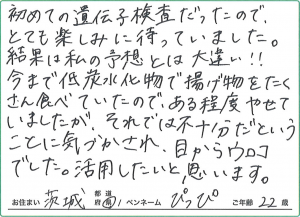 初めての遺伝子検査だったので、
とても楽しみに待っていました。
結果は私の予想とは大違い!!
今まで低炭水化物で揚げ物をたく
さん食べていたので、ある程度やせて
いましたが、それでは不十分だという
ことに気づかされ、目からウロコ
でした。活用したいと思います。
お住まい 茨城 都道府県 ペンネーム ぴっぴ ご年齢 22歳